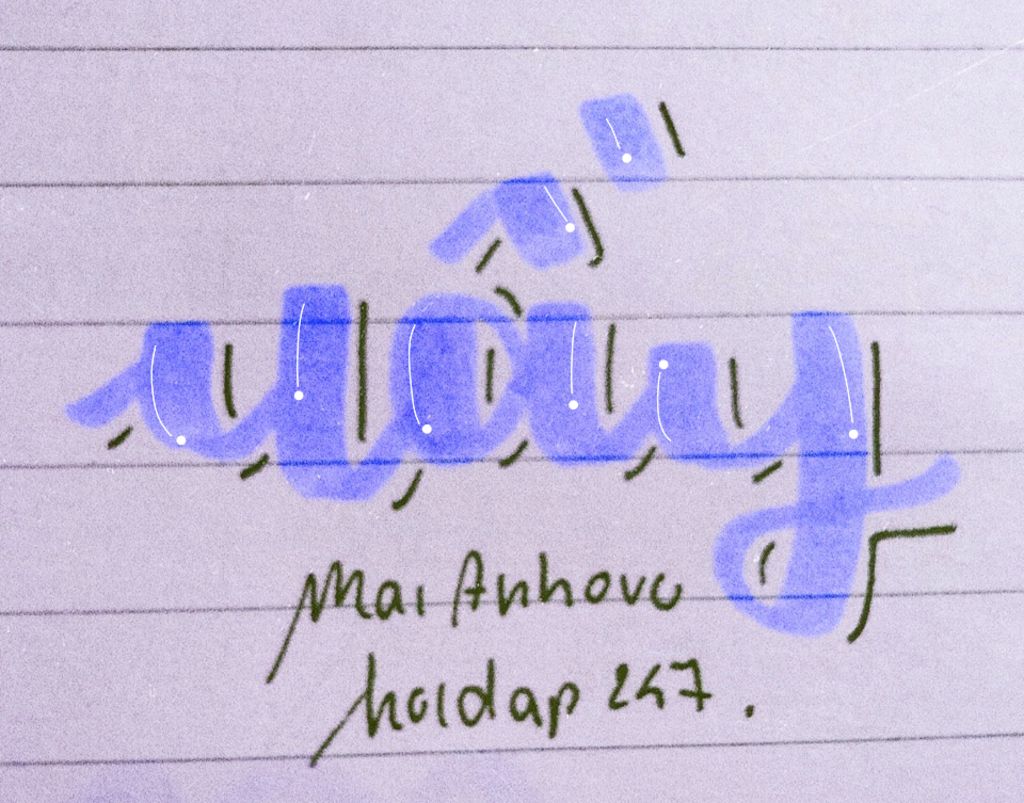 uầy
Mai Anhovc
hoidap 247.